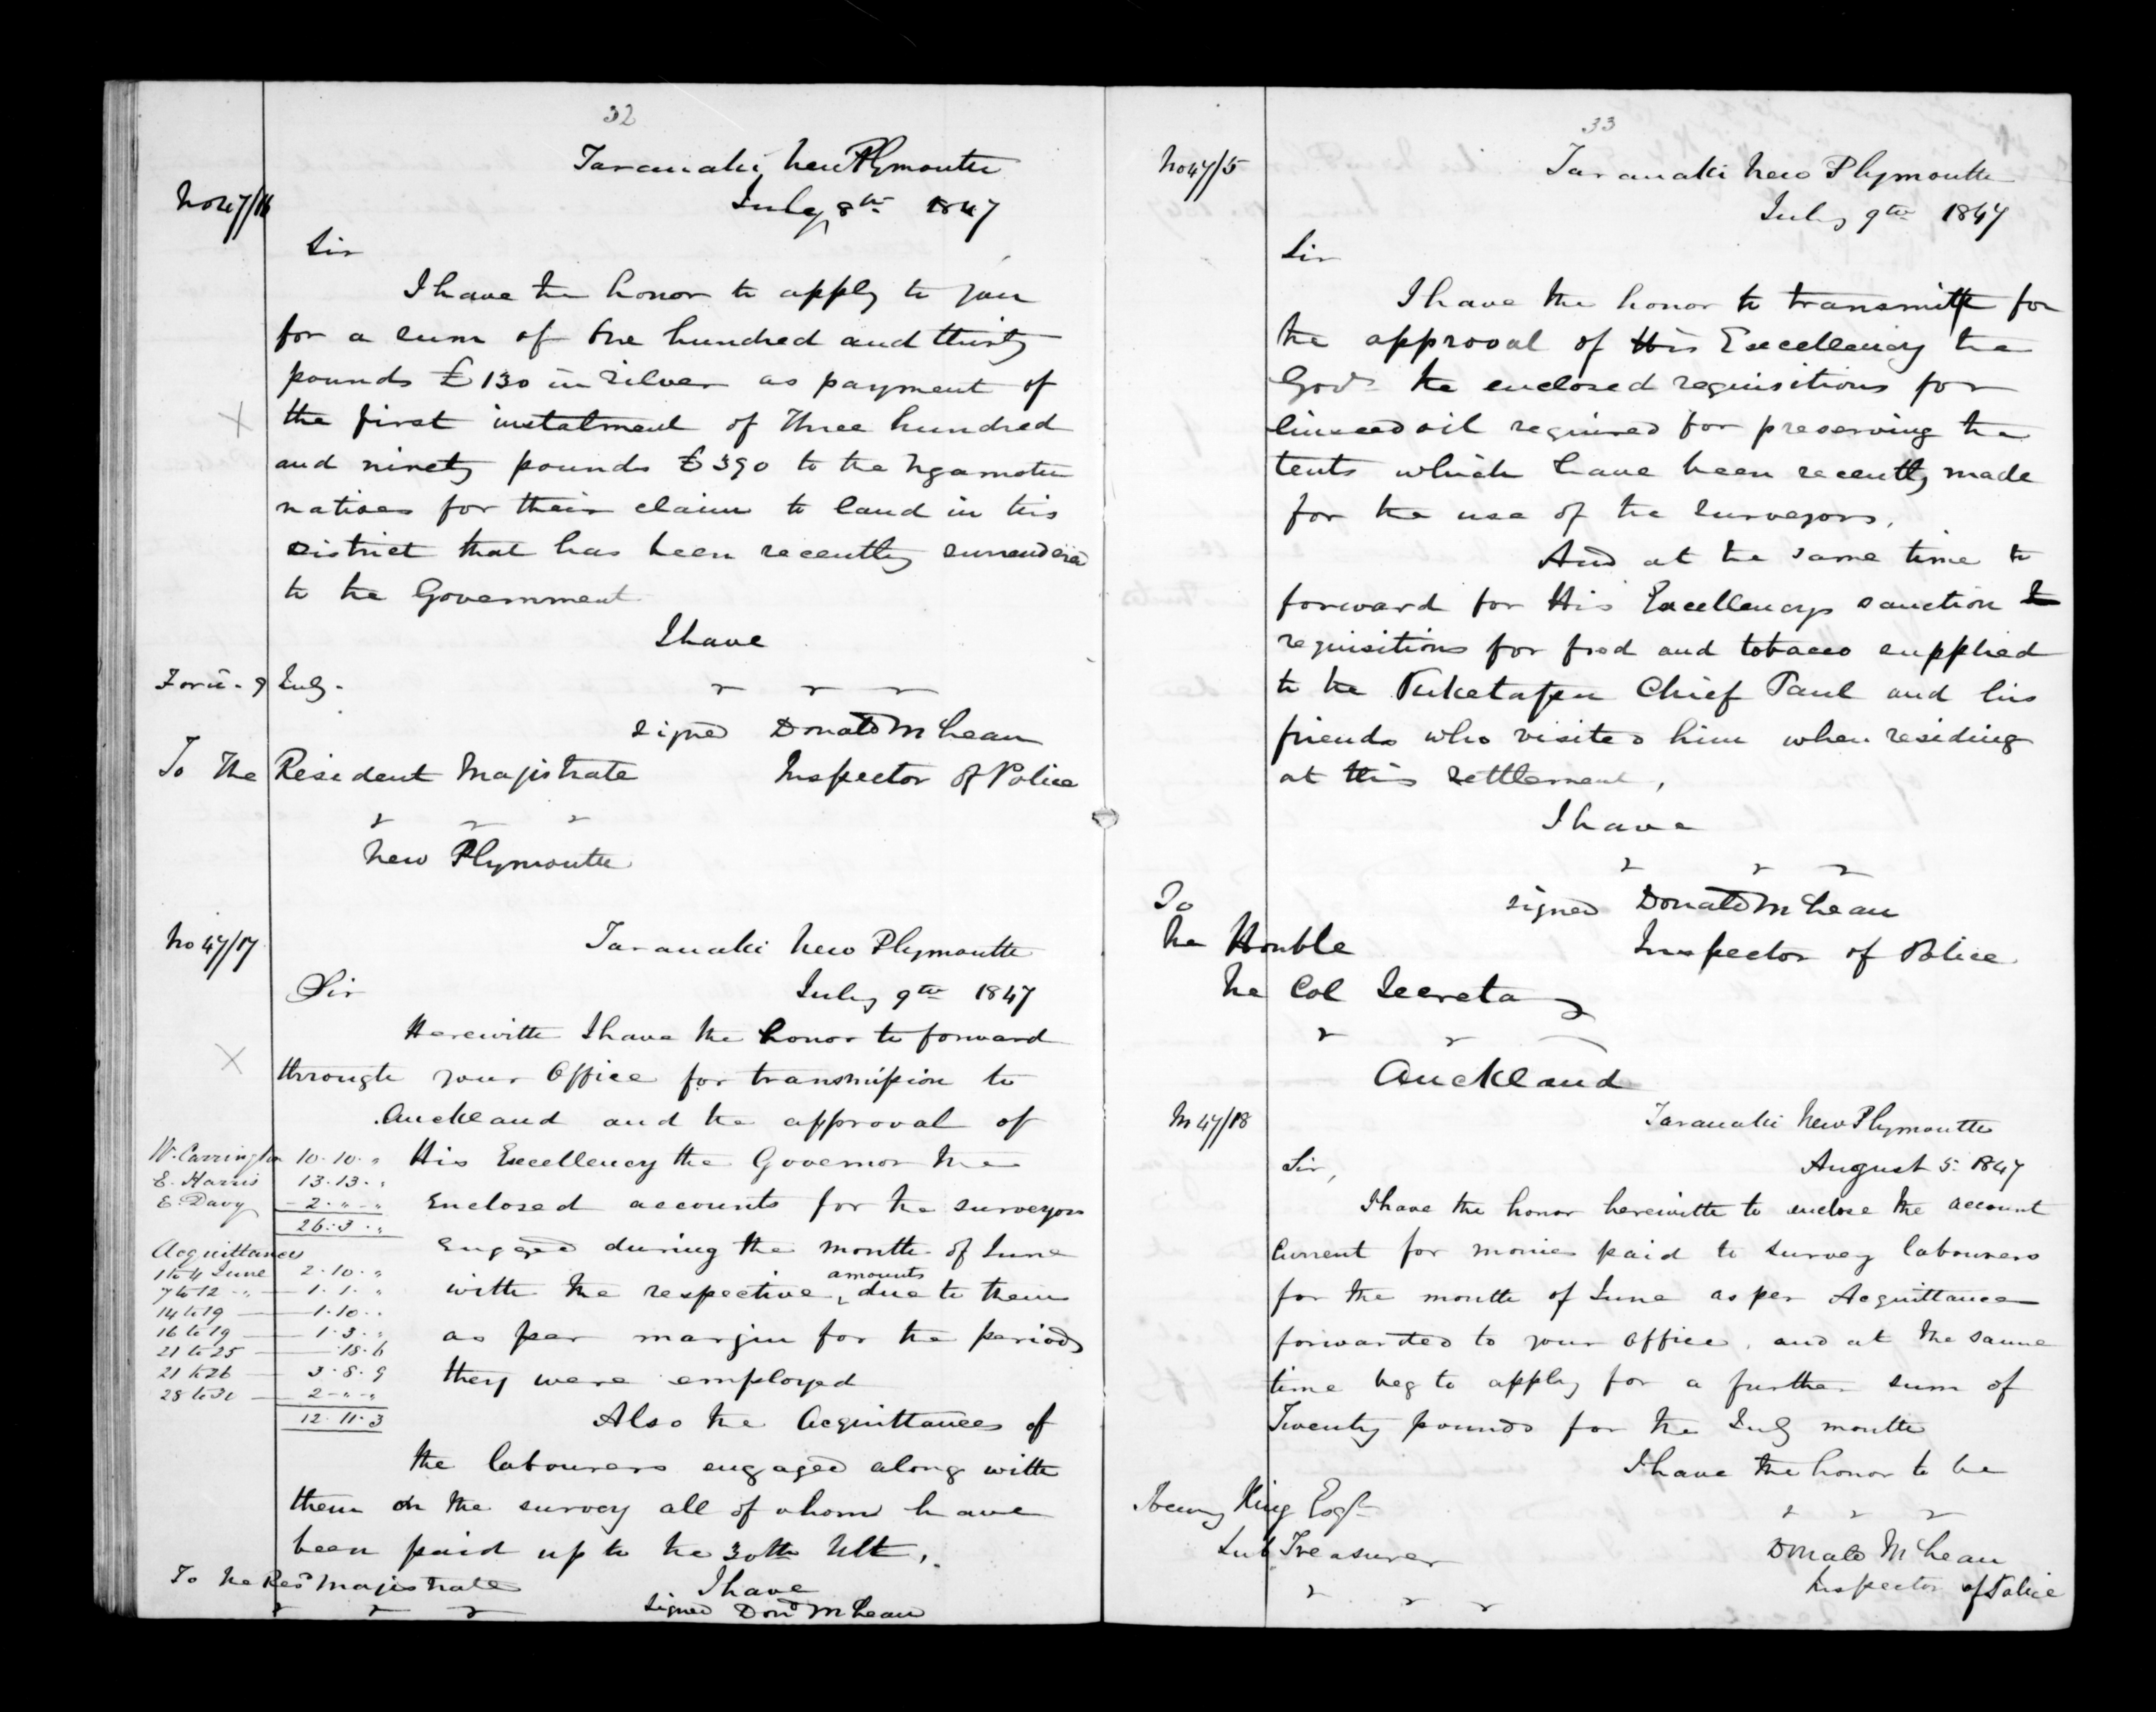 32
Taranaki, New Plymouth
No 47/16
July 8th 1847
Sir
I have the honor to apply to you
for a sum of One hundred and thirty
pounds £130 in silver as payment of
the first instalment of Three hundred
and ninety pounds £390 to the Ngamotu
natives for their claim to land in this
District that has been recently surrendered
to the Government.
I have
9 July.
signed Donald McLean
To The Resident Magistrate Inspector of Police
New Plymouth
No 47/17
Taranaki New Plymouth
Sir July 9th 1847
Herewith I have the honor to forward
through your Office for transmission to
Auckland and the approval of
W. Carrington 10.10.„ His Excellency the Governor the
E. Harris 13.13.„
E. Davy 2.„.„ Enclosed accounts for the surveyors
26.3.„
Acquittances engaged during the month of June
1 to 4 June 2.10.„
amounts
7 to 12 „ 1.1.„ with the respective ^ due to them
14 to 19 1.10..
16 to 19 1.3.„ as per margin for the periods
21 to 25 18.6
21 to 26 3.8.9 they were employed
28 to 30 2.„.„
12.11.3 Also the Acquittances of
the labourers engaged along with
them on the survey all of whom have
been paid up to the 30th Ult,.
To the Rest Magistrate I have
signed Dond McLean
33
No 47/5 Taranaki New Plymouth
July 9th 1847
Sir
I have the honor to transmitt for
the approval of His Excellency the
Govr the enclosed requisitions for
linseed oil required for preserving the
tents which have been recently made
for the use of the surveyors.
And at the same time to
forward for His Excellencys sanction
requisitions for food and tobacco supplied
to the Puketapu Chief Paul and his
friends who visited him when residing
at this settlement,
I have
To signed Donald McLean
the Honble Inspector of Police
The Col Secretary
Auckland
No 47/18 Taranaki New Plymouth
Sir, August 5. 1847
I have the honor herewith to enclose the account
Current for monies paid to survey labourers
for the month of June as per Acquittances
forwarded to your Office, and at the same
time beg to apply for a further sum of
Twenty pounds for the July month
I have the honor to be
Henry King Esqr
Sub Treasurer Donald McLean
Inspector of Police